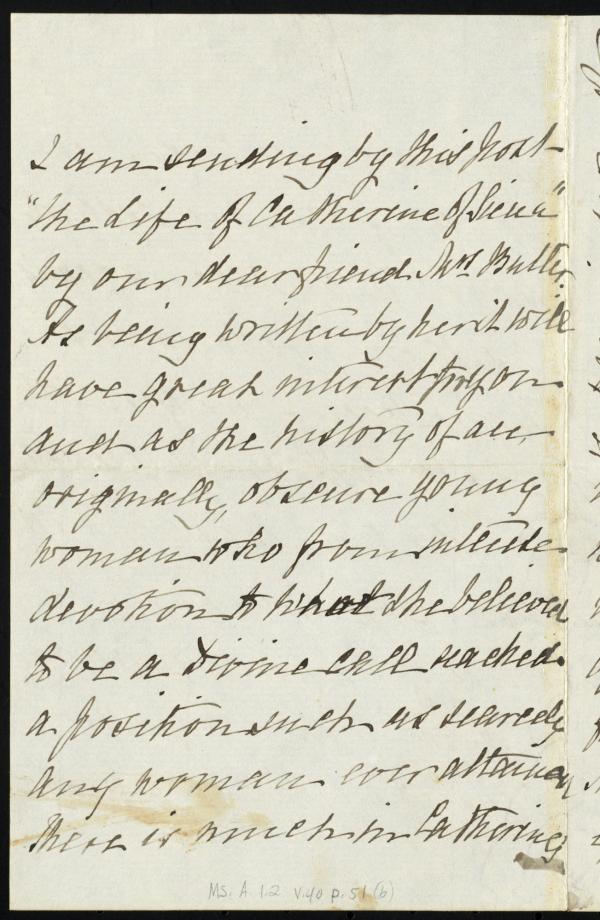 I am sending by this post
"the Life of Catherine of Siena"
by our dear friend Mrs Butler.
As being written by her it will
have great interest for you
and as the history of an
originally, obscure young
woman who from intense
devotion to what she believed
to be a divine call reached
a position such as scarcely
any woman ever attained
there is much in Catherine's
Ms. A. 1.2 v.40 p. 51 (b)